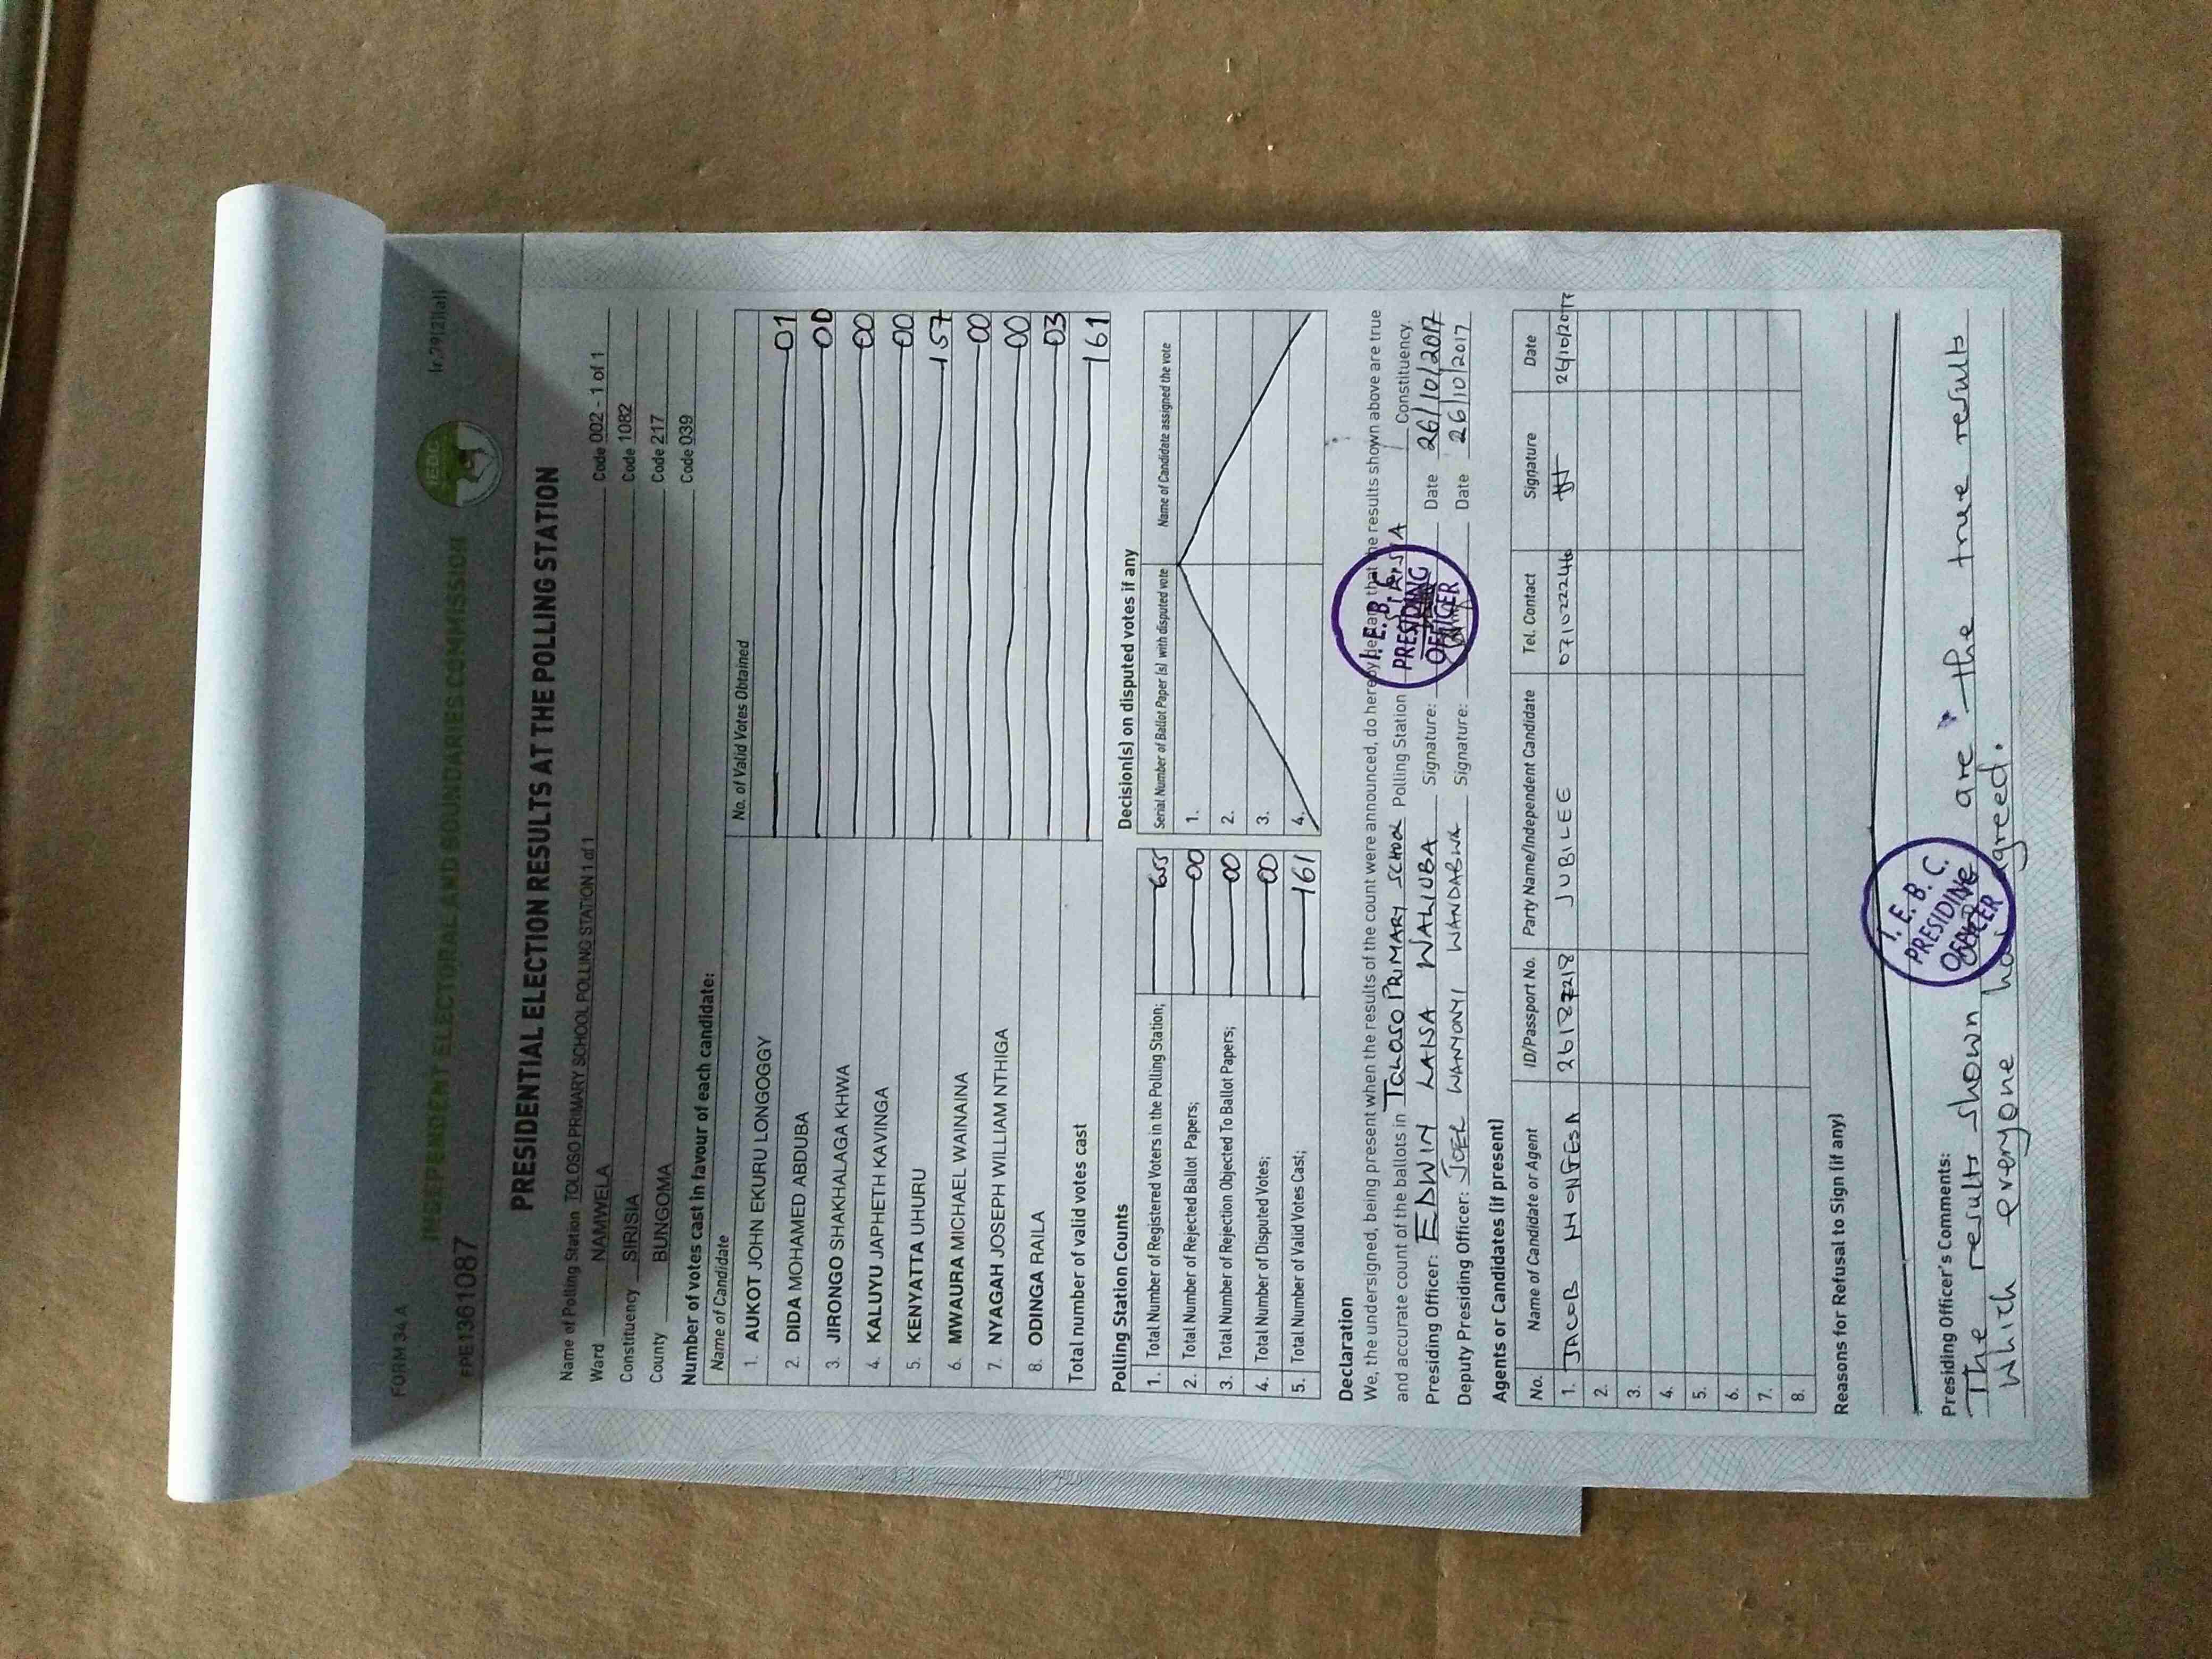 FORM 34 A
[r.79(2)(a)]
IEBC
INDEPENDENT ELECTORAL AND BOUNDARIES COMMISSION
EPE1361087
PRESIDENTIAL ELECTION RESULTS AT THE POLLING STATION
Name of Polling Station TOLOSO PRIMARY SCHOOL POLLING STATION 1 of 1 Code 002 - 1 of 1
Ward NAMWELA Code 1082
Constituency SIRISIA Code 217
County BUNGOMA Code 039
Number of votes cast in favour of each candidate:
Name of Candidate No. of Valid Votes Obtained
1. AUKOT JOHN EKURU LONGOGGY 01
2. DIDA MOHAMED ABDUBA 00
3. JIRONGO SHAKHALAGA KHWA 00
4. KALUYU JAPHETH KAVINGA 00
5. KENYATTA UHURU 157
6. MWAURA MICHAEL WAINAINA 00
7. NYAGAH JOSEPH WILLIAM NTHIGA 00
8. ODINGA RAILA 03
Total number of valid votes cast 161
Polling Station Counts
1. Total Number of Registered Voters in the Polling Station; 655
2. Total Number of Rejected Ballot Papers; 00
3. Total Number of Rejection Objected To Ballot Papers; 00
4. Total Number of Disputed Votes; 00
5. Total Number of Valid Votes Cast; 161
Decision(s) on disputed votes if any
Serial Number of Ballot Paper (s) with disputed vote Name of Candidate assigned the vote
1.
2.
3.
4.
Declaration
We, the undersigned, being present when the results of the count were announced, do hereby declare that the results shown above are true
and accurate count of the ballots in TOLOSO PRIMARY SCHOOL Polling Station SIRISIA Constituency.
Presiding Officer: EDWIN LAISA WALIUBA Signature: Date 26/10/2017
Deputy Presiding Officer: JOEL WANYONYI WANDABWA Signature: Date 26/10/2017
I. E. B. C.
PRESIDING
OFFICER
Agents or Candidates (if present)
No. Name of Candidate or Agent ID/Passport No. Party Name/Independent Candidate Tel. Contact Signature Date
1. JACOB JUBILEE 26/10/2017
2.
3.
4.
5.
6.
7.
8.
Reasons for Refusal to Sign (if any)
Presiding Officer's Comments:
The results shown are the true results
Which everyone agreed.
I. E. B. C.
PRESIDING
OFFICER